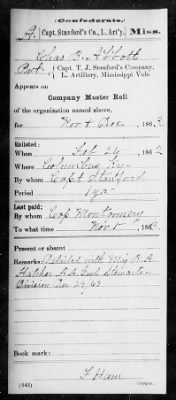 (Confederate.)
A. Capt. Stanford's Co., L. Art'y. Miss.
Chas B. Abbott
Pvt. Capt. T. J. Stanford's Company,
L. Artillery, Mississippi Vols.
Appears on
Company Muster Roll
of the organization named above,
for Nov & Dec, 1863.
Enlisted:
When Feb 24, 1862
Where Columbus
By whom Capt Stanford
Period 1 yr
Last paid:
By whom Cap Montgomery
To what time Nov 1, 186
Present or absent
Remarks: Detailed with Maj
Division
Book mark:
F Ham
(642) Copyist.